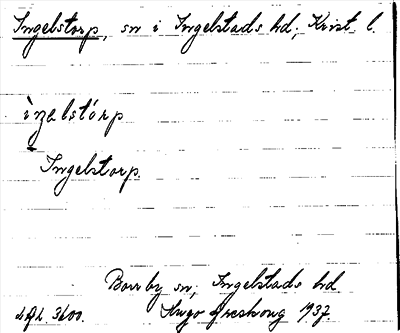 Ingelstorp, sn i Ingelstads hd; Krist. l.
ìŋəlstórp
Ingelstorp
Borrby sn, Ingelstads hd
Hugo Areskoug 1937.